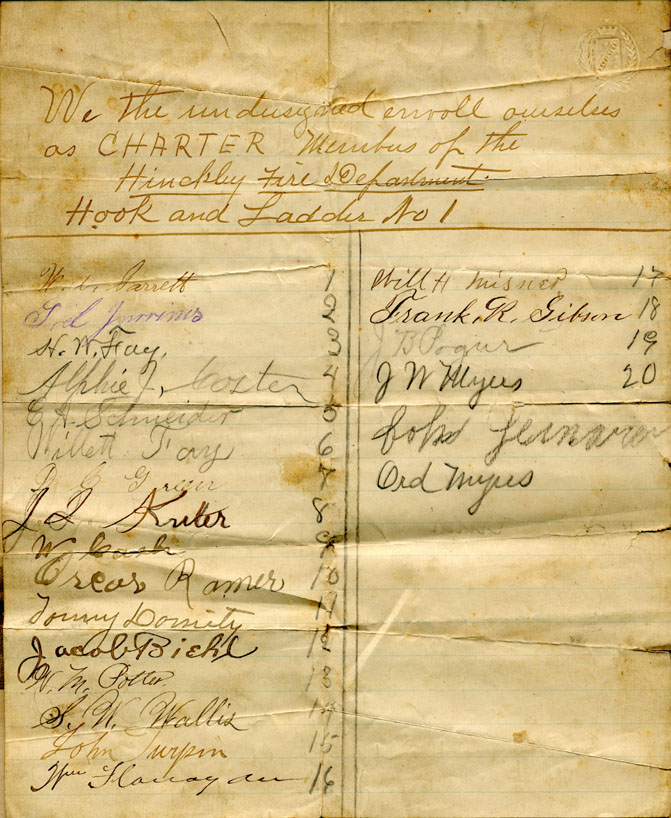 We the undersigned enroll ourselves
as CHARTER Members of the
Hinckley Fire Department.
Hook and Ladder No 1
W. Garrett 1
2
H. W. Fay, 3
Alphie J. Coster 4
Schneider 5
Willett Fay 6
7
J. 8
W. Cash 9
Oscar Ramer 10
Tommy Dornity 11
Jacob Biehl 12
W. M. Potter 13
S. W. Wallis 14
John Turpin 15
Wm 16
Will H Misner 17
Frank, R. Gibson 18
J B 19
J W Myers 20
Ord Myres